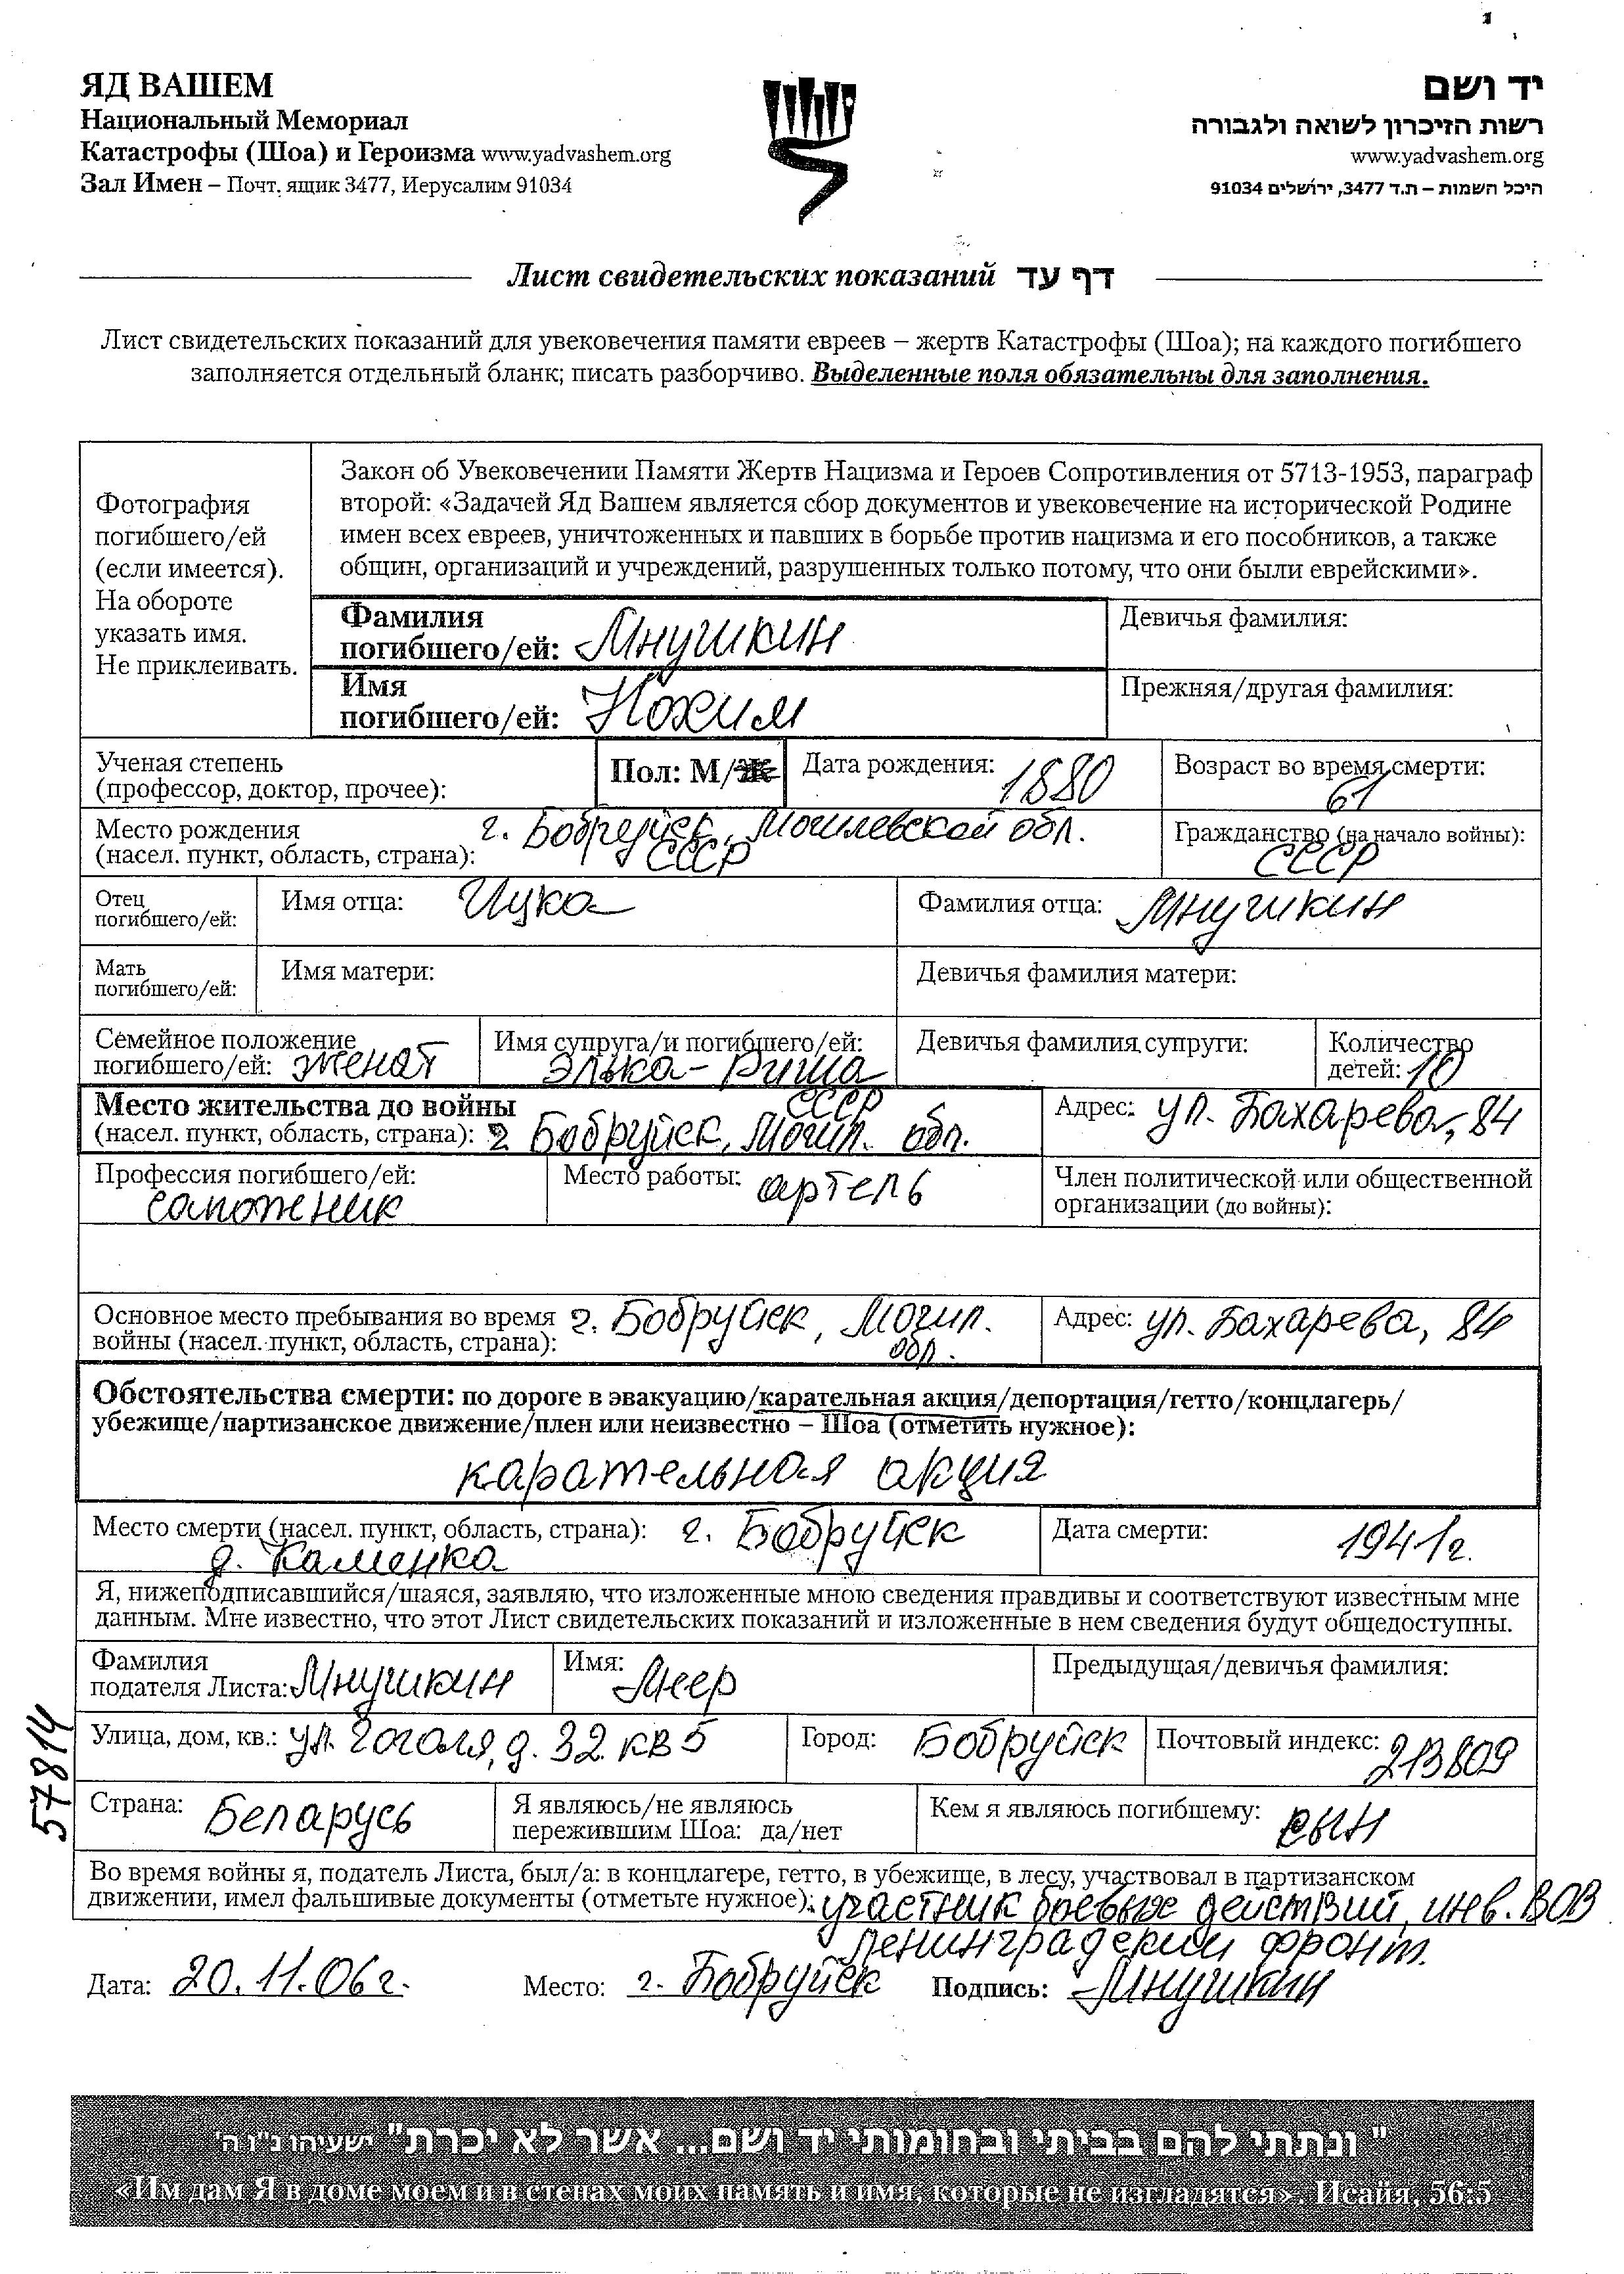 ЯД ВАШЕМ
Национальный Мемориал
Катастрофы (Шоа) и Героизма www.yadvashem.org
Зал Имен – Почт. ящик 3477, Иерусалим 91034
יד ושם
רשות הזיכרון לשואה ולגבורה
www.yadvashem.org
היכל השמות – ת.ד 3477, ירושלים 91034
Лист свидетельских показаний דף עד
Лист свидетельских показаний для увековечения памяти евреев – жертв Катастрофы (Шоа); на каждого погибшего
заполняется отдельный бланк; писать разборчиво. Выделенные поля обязательны для заполнения.
Фотография
погибшего/ей
(если имеется).
На обороте
указать имя.
Не приклеивать.
Закон об Увековечении Памяти Жертв Нацизма и Героев Сопротивления от 5713-1953, параграф
второй: «Задачей Яд Вашем является сбор документов и увековечение на исторической Родине
имен всех евреев, уничтоженных и павших в борьбе против нацизма и его пособников, а также
общин, организаций и учреждений, разрушенных только потому, что они были еврейскими».
Фамилия
погибшего/ей: Мнушкин
Девичья фамилия:
Имя
погибшего/ей: Нохим
Прежняя/другая фамилия:
Ученая степень
(профессор, доктор, прочее):
Пол: М/Ж
Дата рождения: 1880
Возраст во время смерти:
61
Место рождения г. Бобруйск, Могилевской обл.
(насел. пункт, область, страна): СССР
Гражданство (на начало войны):
СССР
Отец
погибшего/ей:
Имя отца: Ицка
Фамилия отца: Мнушкин
Мать
погибшего/ей:
Имя матери:
Девичья фамилия матери:
Семейное положение
погибшего/ей: женат
Имя супруга/и погибшего/ей:
Элька-Риша
Девичья фамилия супруги:
Количество
детей: 10
Место жительства до войны СССР
(насел. пункт, область, страна): г Бобруйск, Могил. обл.
Адрес: ул. Бахарева, 84
Профессия погибшего/ей:
сапожник
Место работы: артель
Член политической или общественной
организации (до войны):
Основное место пребывания во время г. Бобруйск, Могил.
войны (насел. пункт, область, страна): обл.
Адрес: ул. Бахарева, 84
Обстоятельства смерти: по дороге в эвакуацию/карательная акция/депортация/гетто/концлагерь/
убежище/партизанское движение/плен или неизвестно – Шоа (отметить нужное):
карательная акция
Место смерти (насел. пункт, область, страна): г. Бобруйск
д. Каменка
Дата смерти: 1941г.
Я, нижеподписавшийся/шаяся, заявляю, что изложенные мною сведения правдивы и соответствуют известным мне
данным. Мне известно, что этот Лист свидетельских показаний и изложенные в нем сведения будут общедоступны.
Фамилия
подателя Листа: Мнушкин
Имя: Меер
Предыдущая/девичья фамилия:
Улица, дом, кв.: ул. Гоголя, д. 32 кв 5
Город: Бобруйск
Почтовый индекс: 213809
57814
Страна: Беларусь
Я являюсь/не являюсь
пережившим Шоа: да/нет
Кем я являюсь погибшему: сын
Во время войны я, податель Листа, был/а: в концлагере, гетто, в убежище, в лесу, участвовал в партизанском
движении, имел фальшивые документы (отметьте нужное): участник боевых действий, инв. ВОВ
Ленинградский фронт.
Дата: 20.11.06г. Место: г. Бобруйск Подпись: Мнушкин
"ונתתי להם בביתי ובחומותי יד ושם... אשר לא יכרת" ישעיהו נ"ו ה'
«Им дам Я в доме моем и в стенах моих память и имя, которые не изгладятся». Исайя, 56:5